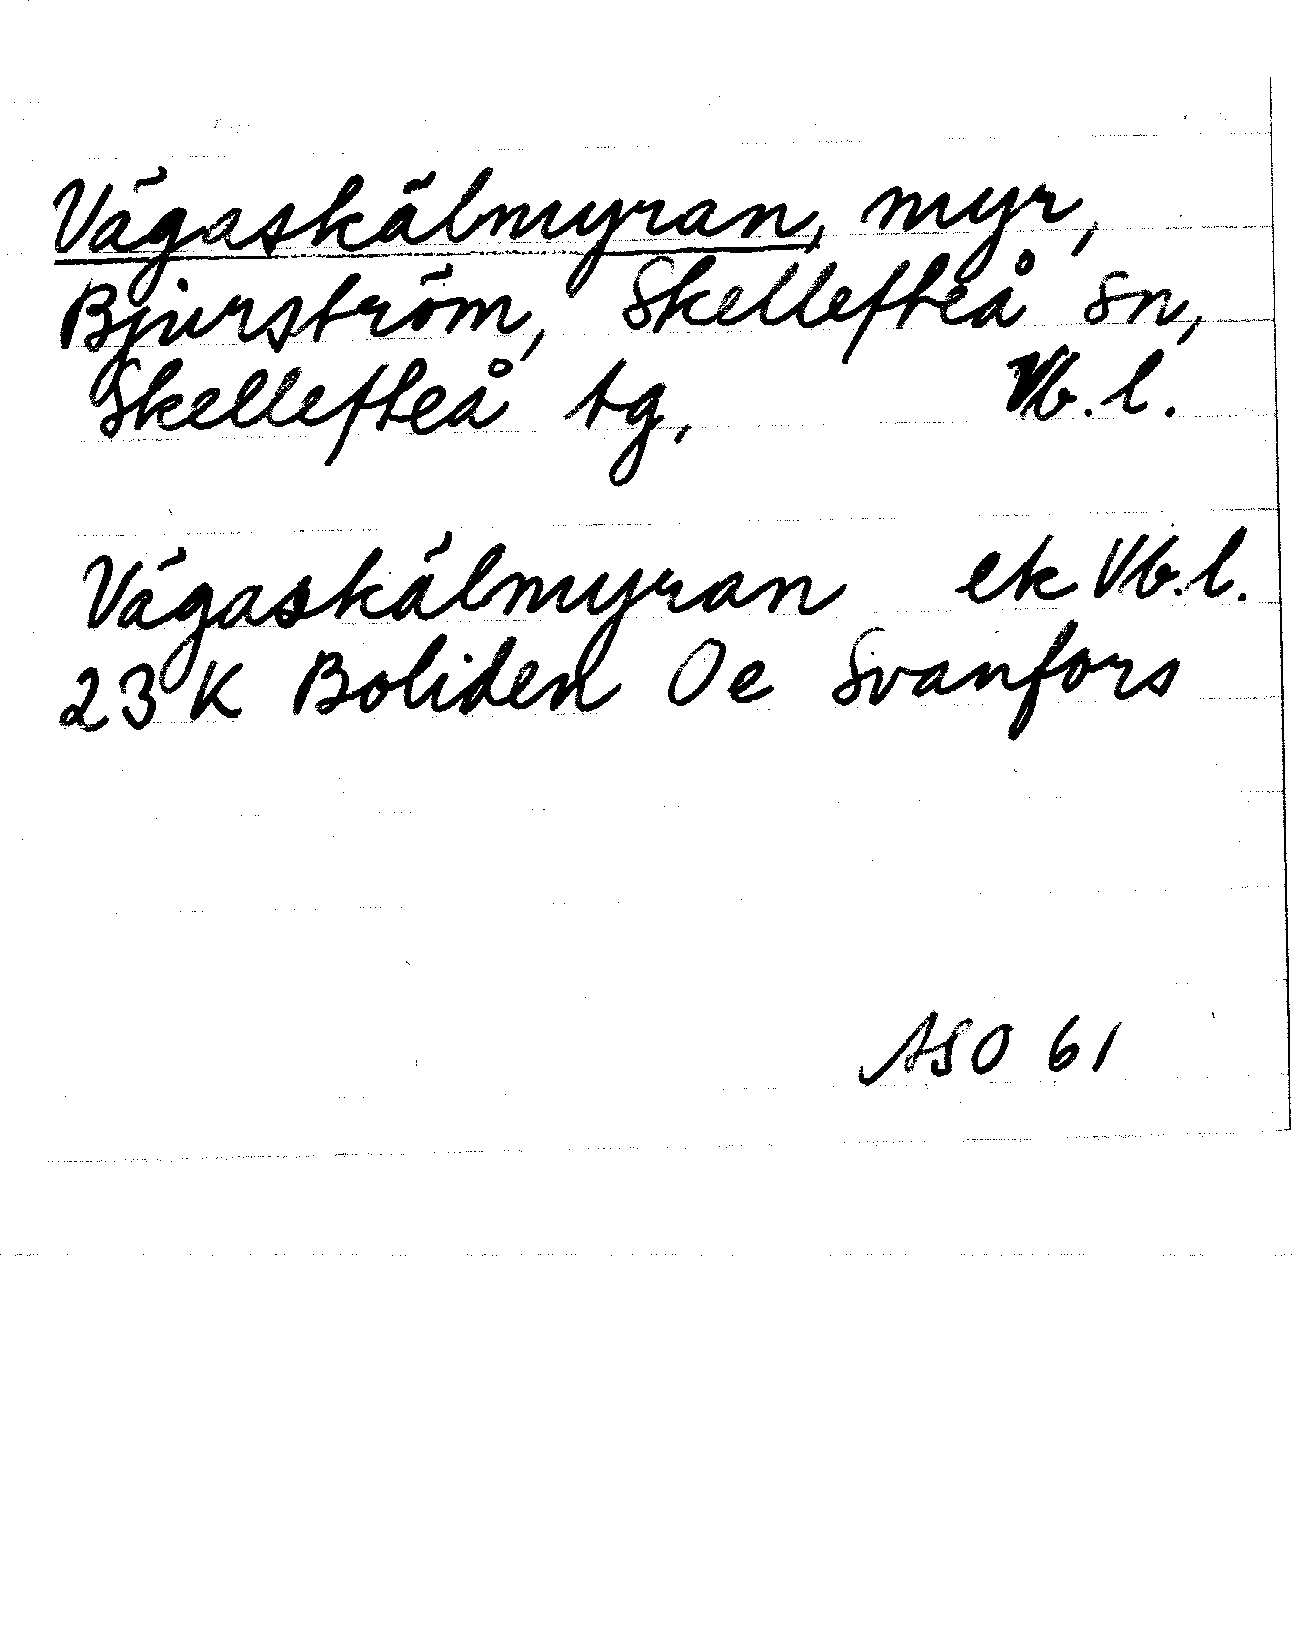 Vägaskälmyran, myr,
Bjurström, Skellefteå sn,
Skellefteå tg, Vb.l.
Vägaskälmyran ek Vb.l.
23 K Boliden Oe Svanfors
ASO 61